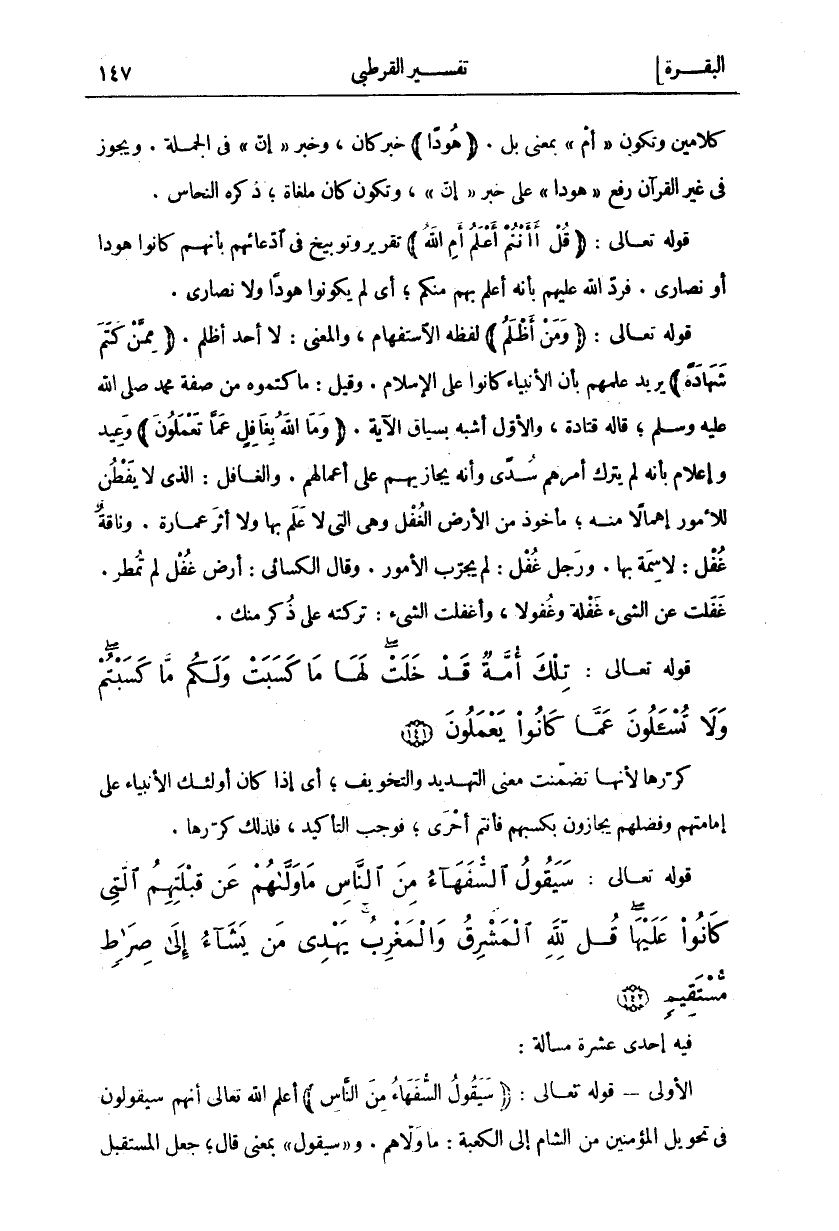 البقـــرة] تفســـير القرطبى ١٤٧
كلامين وتكون «أم» بمعنى بل . ﴿ هُودًا ﴾ خبر كان ، وخبر « إنّ » فى الجمــلة . ويجوز
فى غير القرآن رفع « هودا » على خبر « إنّ » ، وتكون كان ملغاة ؛ ذكره النحاس .
قوله تعــالى : ﴿ قُلْ أَأَنْتُمْ أَعْلَمُ أَمِ اللهُ ﴾ تقرير وتوبيخ فى آدّعائهم بأنهــم كانوا هودا
أو نصارى . فردّ الله عليهم بأنه أعلم بهم منكم ؛ أى لم يكونوا هودًا ولا نصارى .
قوله تعــالى : ﴿ وَمَنْ أَظْلَمُ ﴾ لفظه الآستفهام ، والمعنى : لا أحد أظلم . ﴿ مِمَّنْ كَتَمَ
شَهَادَةً ﴾ يريد علمهم بأن الأنبياء كانوا على الإسلام . وقيل : ما كتموه من صفة محمد صلى الله
عليه وسلم ؛ قاله قتادة ، والأوّل أشبه بسياق الآية . ﴿ وَمَا اللهُ بِغَافِلٍ عَمَّا تَعْمَلُونَ ﴾ وَعِيد
وإعلام بأنه لم يترك أمرهم سُــدًى وأنه يجازيهــم على أعمالهم . والغــافل : الذى لا يَفْطُن
للأمور إهمالًا منــه ؛ مأخوذ من الأرض الغُفْل وهى التى لا عَلَم بها ولا أثرَ عمــارة . وناقةٌ
غُفْل : لا سِمَة بها . ورَجل غُفْل : لم يجرّب الأمور . وقال الكسائى : أرض غُفْل لم تُمطر .
غَفَلت عن الشىء غَفْلة وغُفولا ، وأغفلت الشىء : تركته على ذُكر منك .
قوله تعــالى : تِلْكَ أُمَّةٌ قَدْ خَلَتْ ۖ لَهَا مَا كَسَبَتْ وَلَكُم مَّا كَسَبْتُمْ ۖ
وَلَا تُسْـَٔلُونَ عَمَّا كَانُوا۟ يَعْمَلُونَ ﴿١٤١﴾
كرّرها لأنهــا تضمّنت معنى التهــديد والتخويف ؛ أى إذا كان أولئــك الأنبياء على
إمامتهم وفضلهم يجازون بكسبهم فأنتم أحْرَى ؛ فوجب التأكيد ، فلذلك كرّرها .
قوله تعــالى : سَيَقُولُ ٱلسُّفَهَآءُ مِنَ ٱلنَّاسِ مَا وَلَّىٰهُمْ عَن قِبْلَتِهِمُ ٱلَّتِى
كَانُوا۟ عَلَيْهَا ۚ قُــل لِّلَّهِ ٱلْمَشْرِقُ وَٱلْمَغْرِبُ ۚ يَهْدِى مَن يَشَآءُ إِلَىٰ صِرَٰطٍ
مُّسْتَقِيمٍ ﴿١٤٢﴾
فيه إحدى عشرة مسألة :
الأولى — قوله تعــالى : ﴿ سَيَقُولُ السُّفَهَاءُ مِنَ النَّاسِ ﴾ أعلم الله تعالى أنهم سيقولون
فى تحويل المؤمنين من الشام إلى الكعبة : ما وَلّاهم . و«سيقول» بمعنى قال ؛ جعل المستقبل